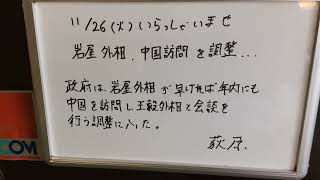 11/26(火)いらっしゃいませ
岩屋外相、中国訪問を調整...
政府は、岩屋外相が早ければ年内にも
中国を訪問し、王毅外相と会談を
行う調整に入った。
荻原.
COM